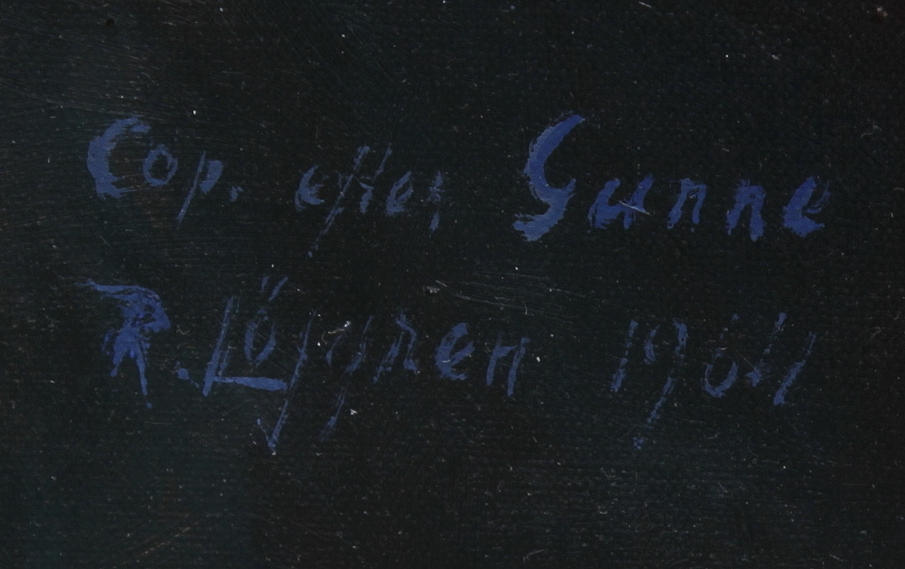 Cop. efter Gunne
R. Löfgren 1904